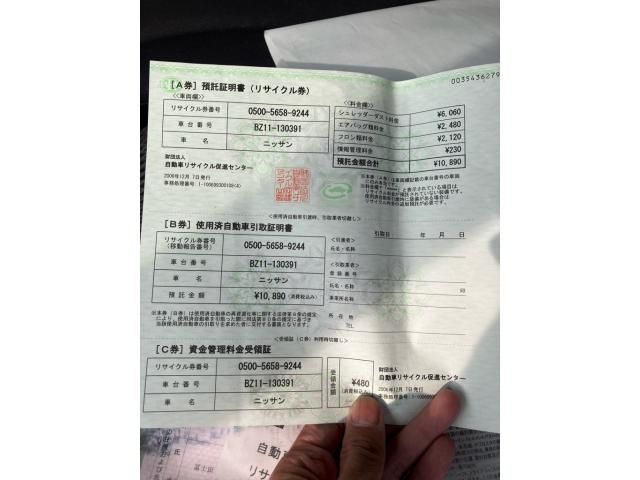 0035436279
[A券] 預託証明書 (リサイクル券)
<<車両欄>>
リサイクル券番号 0500-5658-9244
車台番号 BZ11-130391
車名 ニッサン
<<料金欄>>
シュレッダーダスト料金 ¥6,060
エアバッグ類料金 ¥2,480
フロン類料金 ¥2,120
情報管理料金 ¥230
預託金額合計 ¥10,890
財団法人
自動車リサイクル促進センター
2006年12月 7日発行
<使用済自動車引渡時、引取業者切離し>
[B券] 使用済自動車引取証明書
リサイクル券番号
(移動報告番号) 0500-5658-9244
車台番号 BZ11-130391
車名 ニッサン
預託金額 ¥10,890 (消費税込み)
引取日 年 月 日
<引渡者>
氏名・名称
<引取業者>
登録番号
氏名・名称 印
事業所名称
所在地
TEL
<受領証（C券）利用時切離し>
[C券] 資金管理料金受領証
リサイクル券番号 0500-5658-9244
車台番号 BZ11-130391
車名 ニッサン
受領金額 ¥480
(消費税込み)
財団法人
自動車リサイクル促進センター
2006年12月 7日発行
氏
富士田
自動
リサ